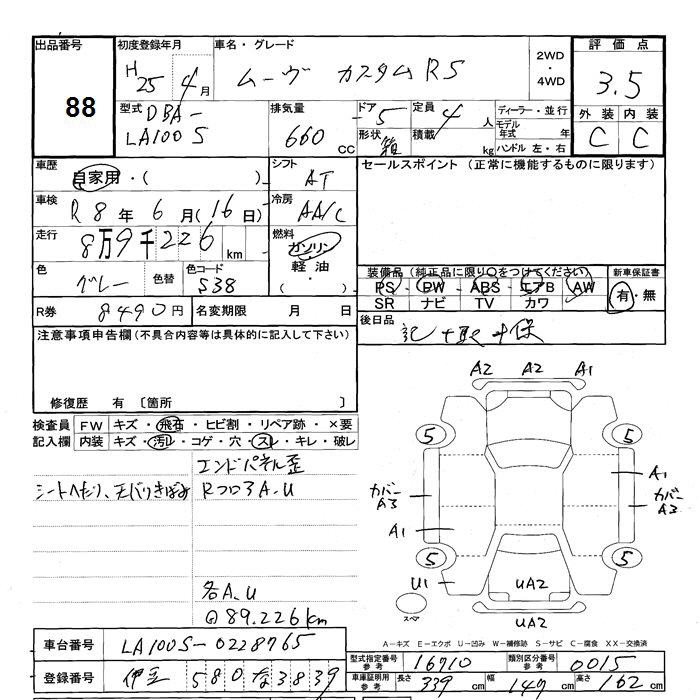 出品番号 初度登録年月 車名・グレード 2WD ・ 4WD 評価点
88 H 25年 4月 ムーヴ カスタムRS 3.5
型式 DBA- LA100S 排気量 660 CC ドア 5 形状 箱 定員 4人 積載 kg ディーラー・並行 モデル年式 年 ハンドル 左・右 外装 内装
C C
車歴 自家用・( ) シフト AT セールスポイント (正常に機能するものに限ります)
車検 R8年6月(16日) 冷房 AA/C
走行 8万9千226km 燃料 ガソリン・軽油・( )
色 グレー 色替 色コード S38 装備品(純正品に限り○をつけてください) 新車保証書
PS PW ABS エアB AW 有・無
SR ナビ TV カワ
R券 8490円 名変期限 月 日 後日品 記+取+保
注意事項申告欄(不具合内容等は具体的に記入して下さい)
修復歴 有 〔箇所 〕
A2 A2 A1
検査員 FW キズ・飛石・ヒビ割・リペア跡・×要
記入欄 内装 キズ・汚レ・コゲ・穴・スレ・キレ・破レ
5 5
エンドパネル歪
シートへたり、天バリきばみ RフロアA.U
カバーA3 A1 カバーA3
A1
5 5
U1 UA2
各A.U
◎89.226km
スペア UA2
A-キズ E-エクボ U-凹み W-補修跡 S-サビ C-腐食 XX-交換済
車台番号 LA100S-0228765 型式指定番号 参考 16710 類別区分番号 参考 0015
登録番号 伊豆 580 な 3839 車庫証明用 参考 長さ 339cm 幅 147cm 高さ 162cm